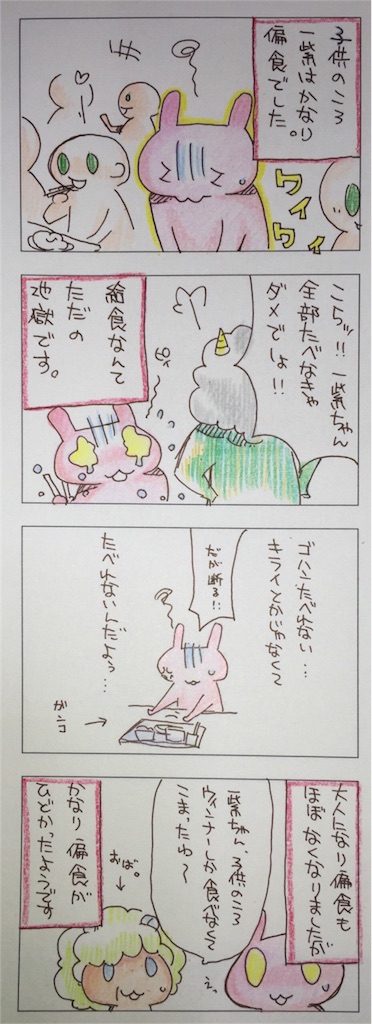 子供のころ
一紫はかなり
偏食でした。
ワイ
ワイ
こらッ!!一紫ちゃん
全部たべなきゃ
ダメでしょ!!
給食なんて
ただの
地獄です。
ゴハンたべれない…
キライとかじゃなくて
だが断る!!
たべれないんだよぅ…
ガンコ
→
大人になり偏食も
ほぼなくなりましたが
一紫ちゃん、子供のころ
ウィンナーしか食べなくて
こまったわ〜
えっ
おば。
→
かなり偏食が
ひどかったようです